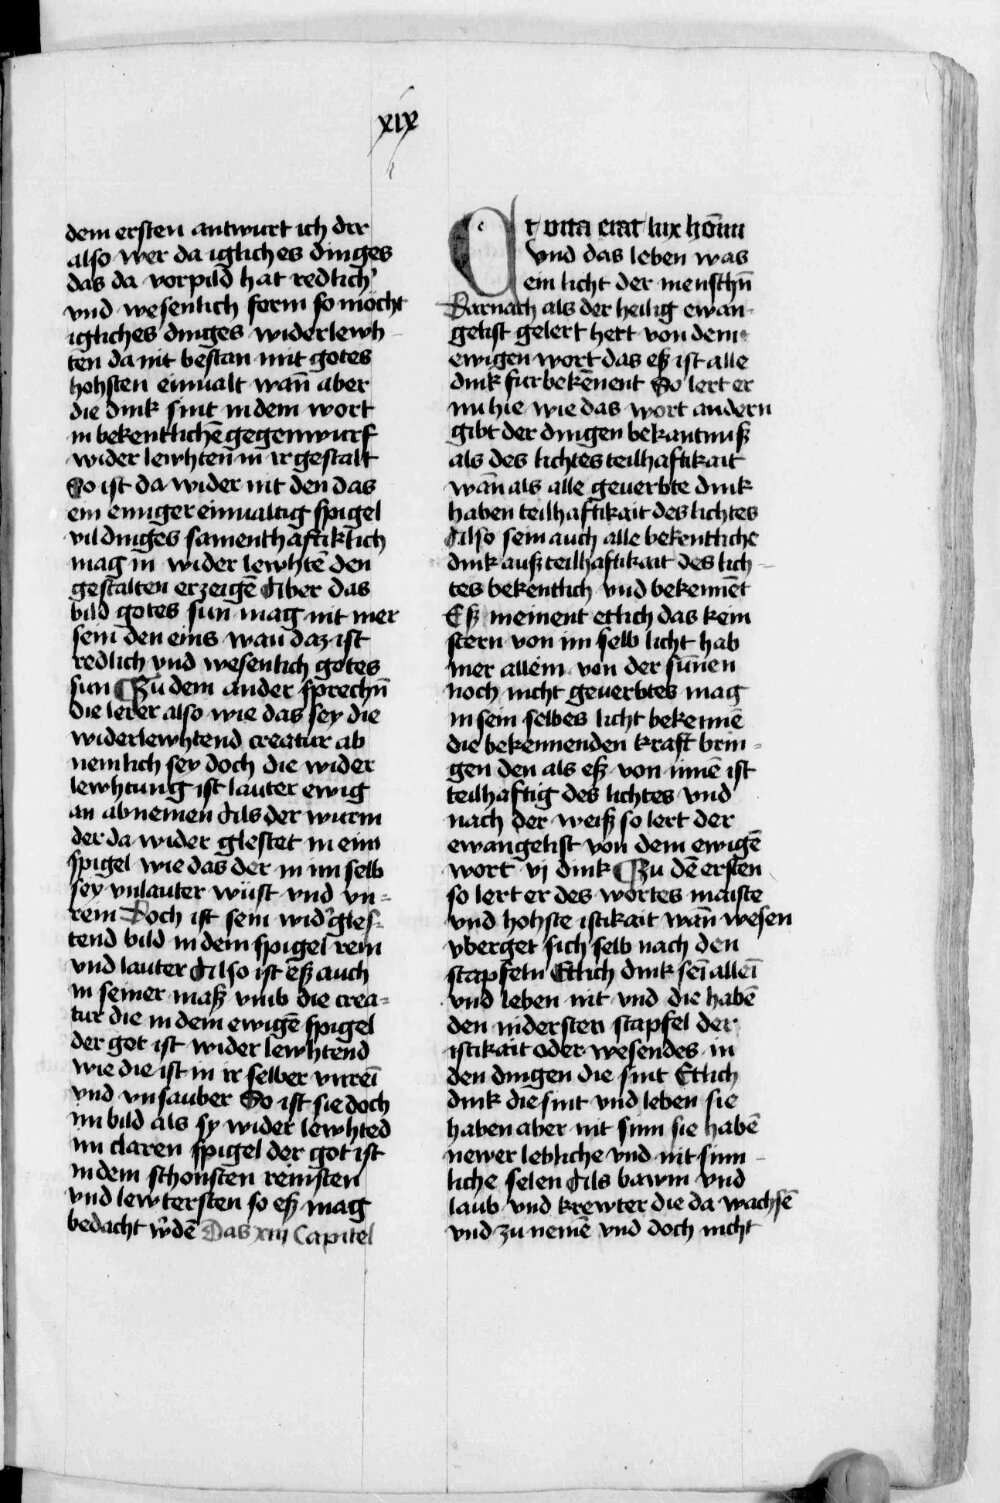 xix
dem ersten antwurt ich dir
also wer da igliches dinges
das da vorpild hat redlich
vnd wesenlich form so möcht
igliches dinges widerlewh
ten da nit bestan mit gotes
hohsten einualt wañ aber
die dink sint in dem wort
in bekentlichē gegenwurf
wider lewhten in ir gestalt
So ist da wider nit den das
ein einiger einualtig spigel
vil dinges samenthaftiklich
mag in wider lewhtē den
gestalten erzeigē Aber das
bild gotes sun mag nit mer
sein den eins wan daz ist
redlich vnd wesenlich gotes
sun Zu dem ander sprechñ
die lerer also wie das sey die
widerlewhtend creatur ab
nemlich sey doch die wider
lewhtung ist lauter ewig
an abnemen Als der wurm
der da wider glestet in eim
spigel wie das der in im selb
sey vnlauter wüst vnd vn=
rein Doch ist sein wid'gles-
tend bild in dem spigel rein
vnd lauter Also ist eß auch
in seiner maß vmb die crea=
tur die in dem ewigē spigel
der got ist wider lewhtend
wie die ist in ir selber vnreī
vnd vnsauber So ist sie doch
im bild als sy wider lewhted
im claren spigel der got ist
in dem schonsten reinsten
vnd lewtersten so eß mag
bedacht w'dē Das xiiij Capitel
Et vita erat lux hōiu
vnd das leben was
ein licht der menschñ
Darnach als der heilig ewan-
gelist gelert hett von dem
ewigen wort das eß ist alle
dink fur bekēnent So lert er
nu hie wie das wort andern
gibt der dingen bekantnuß
als des lichtes teilhaftikait
wān als alle geuerbte dink
haben teilhaftikait des lichtes
Also sein auch alle bekentliche
dink auß teilhaftikait des lich-
tes bekentlich vnd bekennēt
Eß meinent etlich das kein
stern von im selb licht hab
mer allein von der sūnen
noch nicht geuerbtes mag
in sein selbes licht bekennē
die bekennenden kraft brin-
gen den als eß von innē ist
teilhaftig des lichtes vnd
nach der weiß so lert der
ewangelist von dem ewigē
wort vj dink Zu dē ersten
so lert er des wortes maiste
vnd hohste istikait wan wesen
vberget sich selb nach den
stapfeln Etlich dink seī alleī
vnd leben nit vnd die habē
den nidersten stapfel der
istikait oder wesendes in
den dingen die sint Etlich
dink die sint vnd leben sie
haben aber nit sinn sie habē
newer lebliche vnd nit sinn-
liche selen Als bawm vnd
laub vnd krewter die da wachsē
vnd zu nemē vnd doch nicht